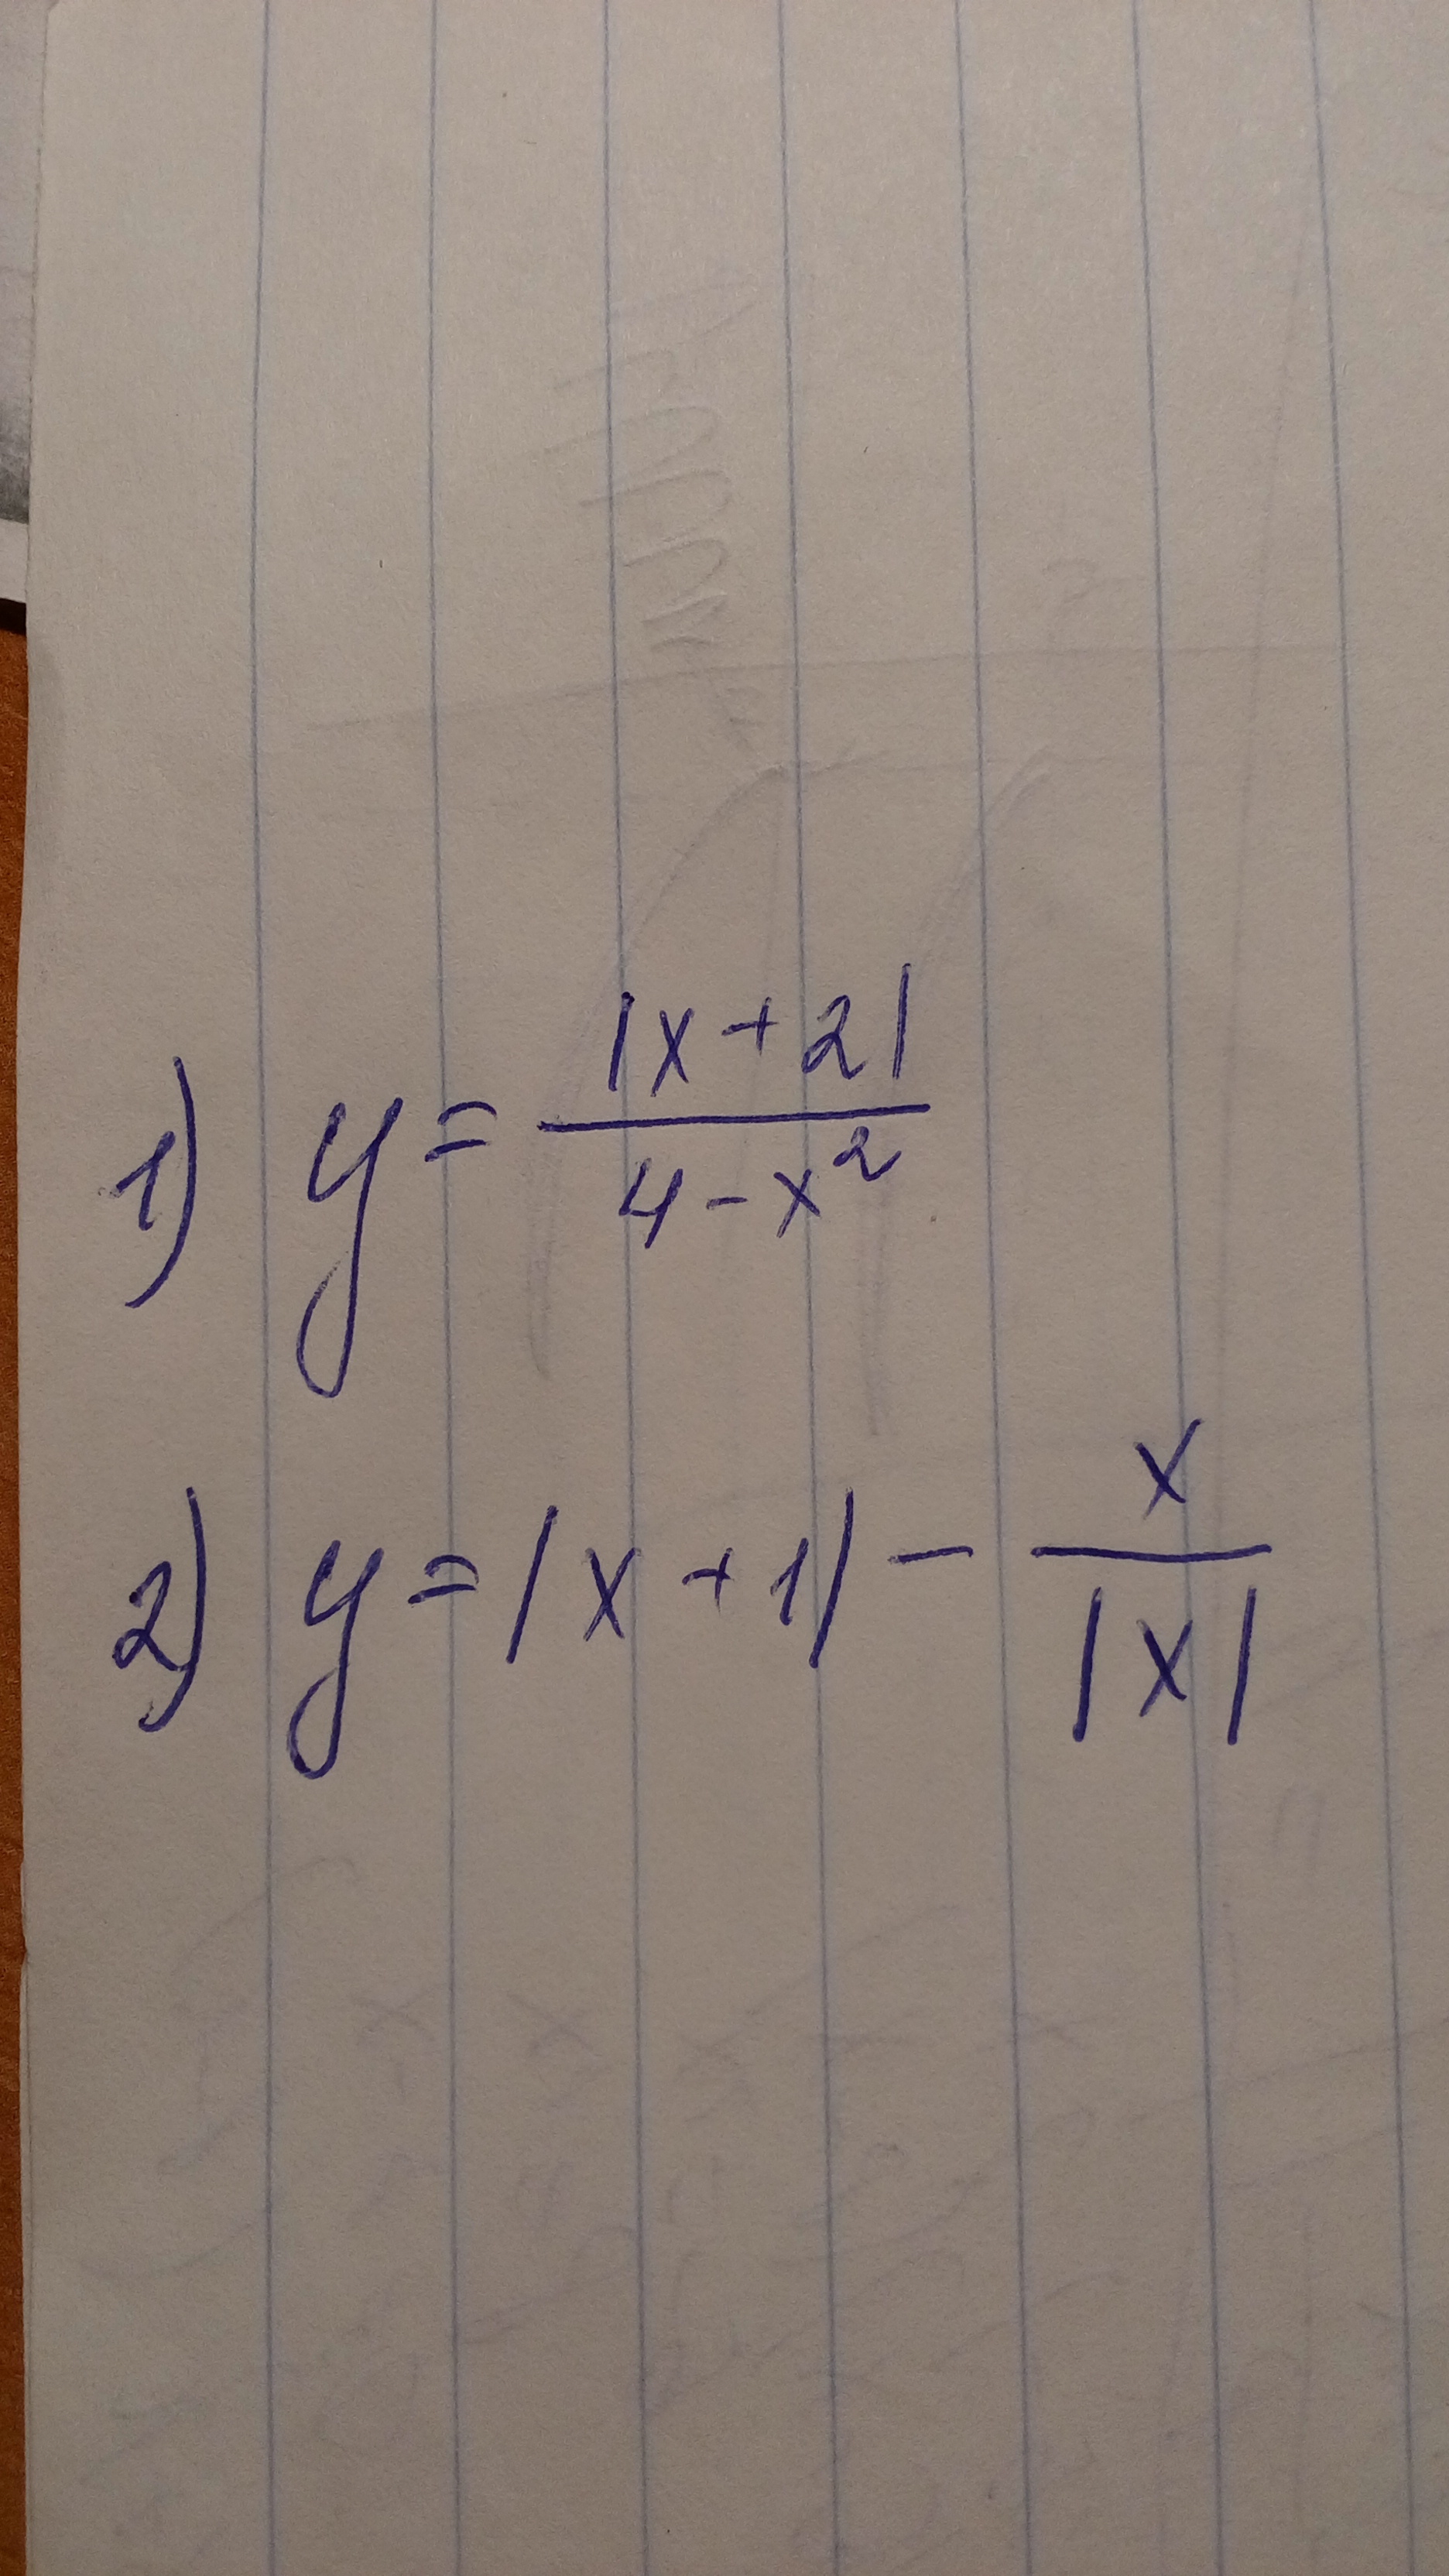 1) y = |x+2| / (4-x²)
2) y = |x+1| - x/|x|